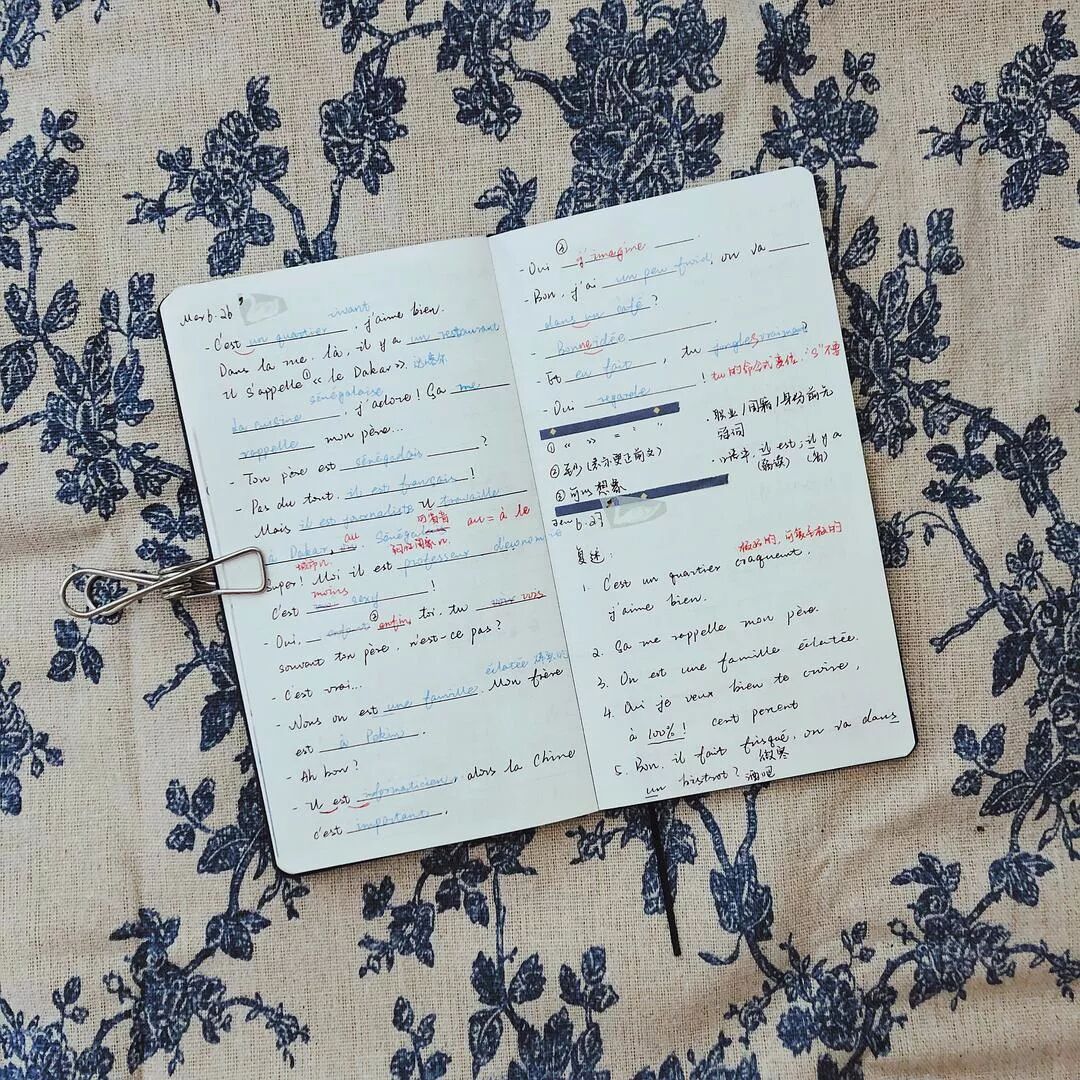 Mer 6.26
vivant
- C'est un quartier, j'aime bien.
Dans la rue. là, il y a un restaurant
il s'appelle ① « le Dakar ».
sénégalaise
La cuisine, j'adore! Ça me
rappelle mon père...
- Ton père est sénégalais ?
- Pas du tout. il est français !
Mais il est journaliste il travaille
à Dakar, au Sénégal au = à le
城市n.
Super! Moi il est professeur d'économie
moins
C'est sexy !
- Oui. ② enfin, toi, tu vois
souvent ton père, n'est-ce pas?
- C'est vrai...
éclatée
- Nous on est une famille. Mon frère
est à Pékin.
- Ah bon?
- Il est informaticien, alors la Chine
c'est important.
③
- Oui j'imagine
- Bon, j'ai un peu froid, on va
dans un café ?
- Bonne idée
- Et en fait, tu jongles vraiment?
tu 的命令式变位 "s" 不要
- Oui regarde !
① « » = " "
②至少(表示更正前文)
③可以想象
·职业/国籍/身份前无
冠词
·口语中, il est; il y a
Jeu 6.27
复述:
极好的,
1. C'est un quartier craquant,
j'aime bien.
2. Ça me rappelle mon père.
3. On est une famille éclatée.
4. Oui je veux bien te croire,
à 100%! cent percent
5. Bon, il fait frisqué, on va dans
微寒
un bistrot? 酒吧